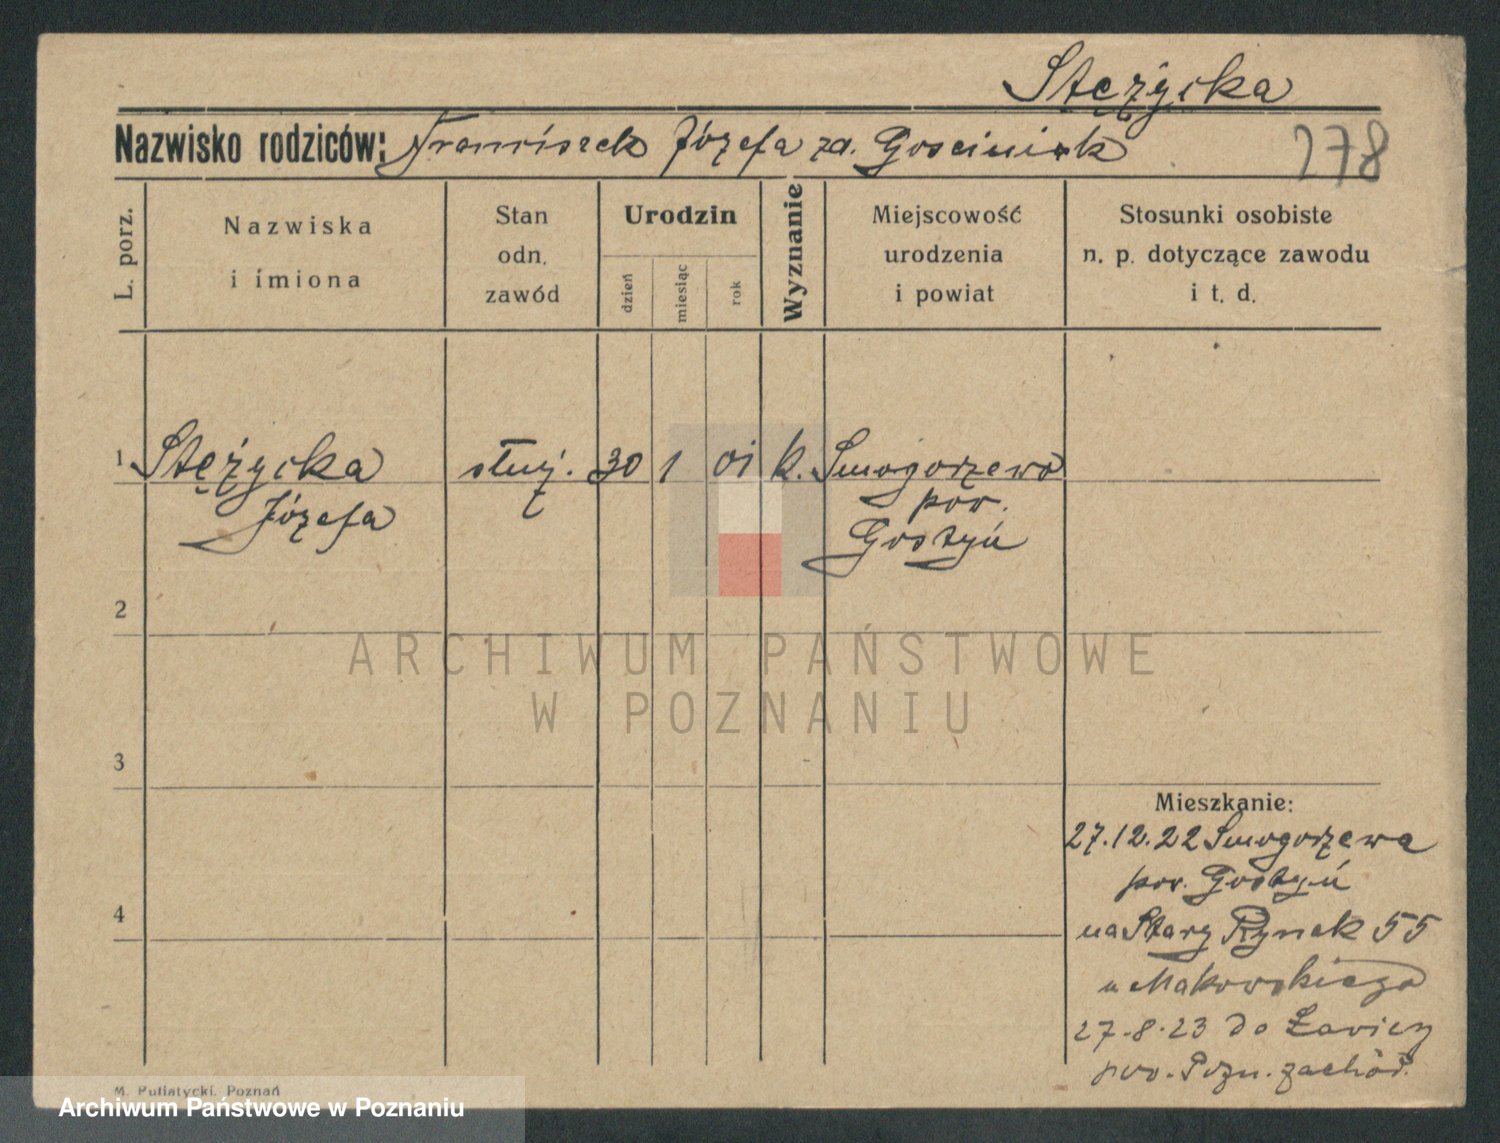 Stężycka
Nazwisko rodziców: Franciszek Józefa zd. Gościniak
278
L. porz.
Nazwiska
i imiona
Stan
odn.
zawód
Urodzin
dzień
miesiąc
rok
Wyznanie
Miejscowość
urodzenia
i powiat
Stosunki osobiste
n. p. dotyczące zawodu
i t. d.
1 Stężycka służ. 30 1 01 k. Smogorzewo
Józefa
pow.
Gostyń
2
3
4
Mieszkanie:
27.12.22 Smogorzewa
pow. Gostyń
na Stary Rynek 55
u Makowskiego
27.8.23 do Ławicy
pow. Pozn. zachód.
M. Putiatycki, Poznań
ARCHIWUM PAŃSTWOWE
W POZNANIU
Archiwum Państwowe w Poznaniu